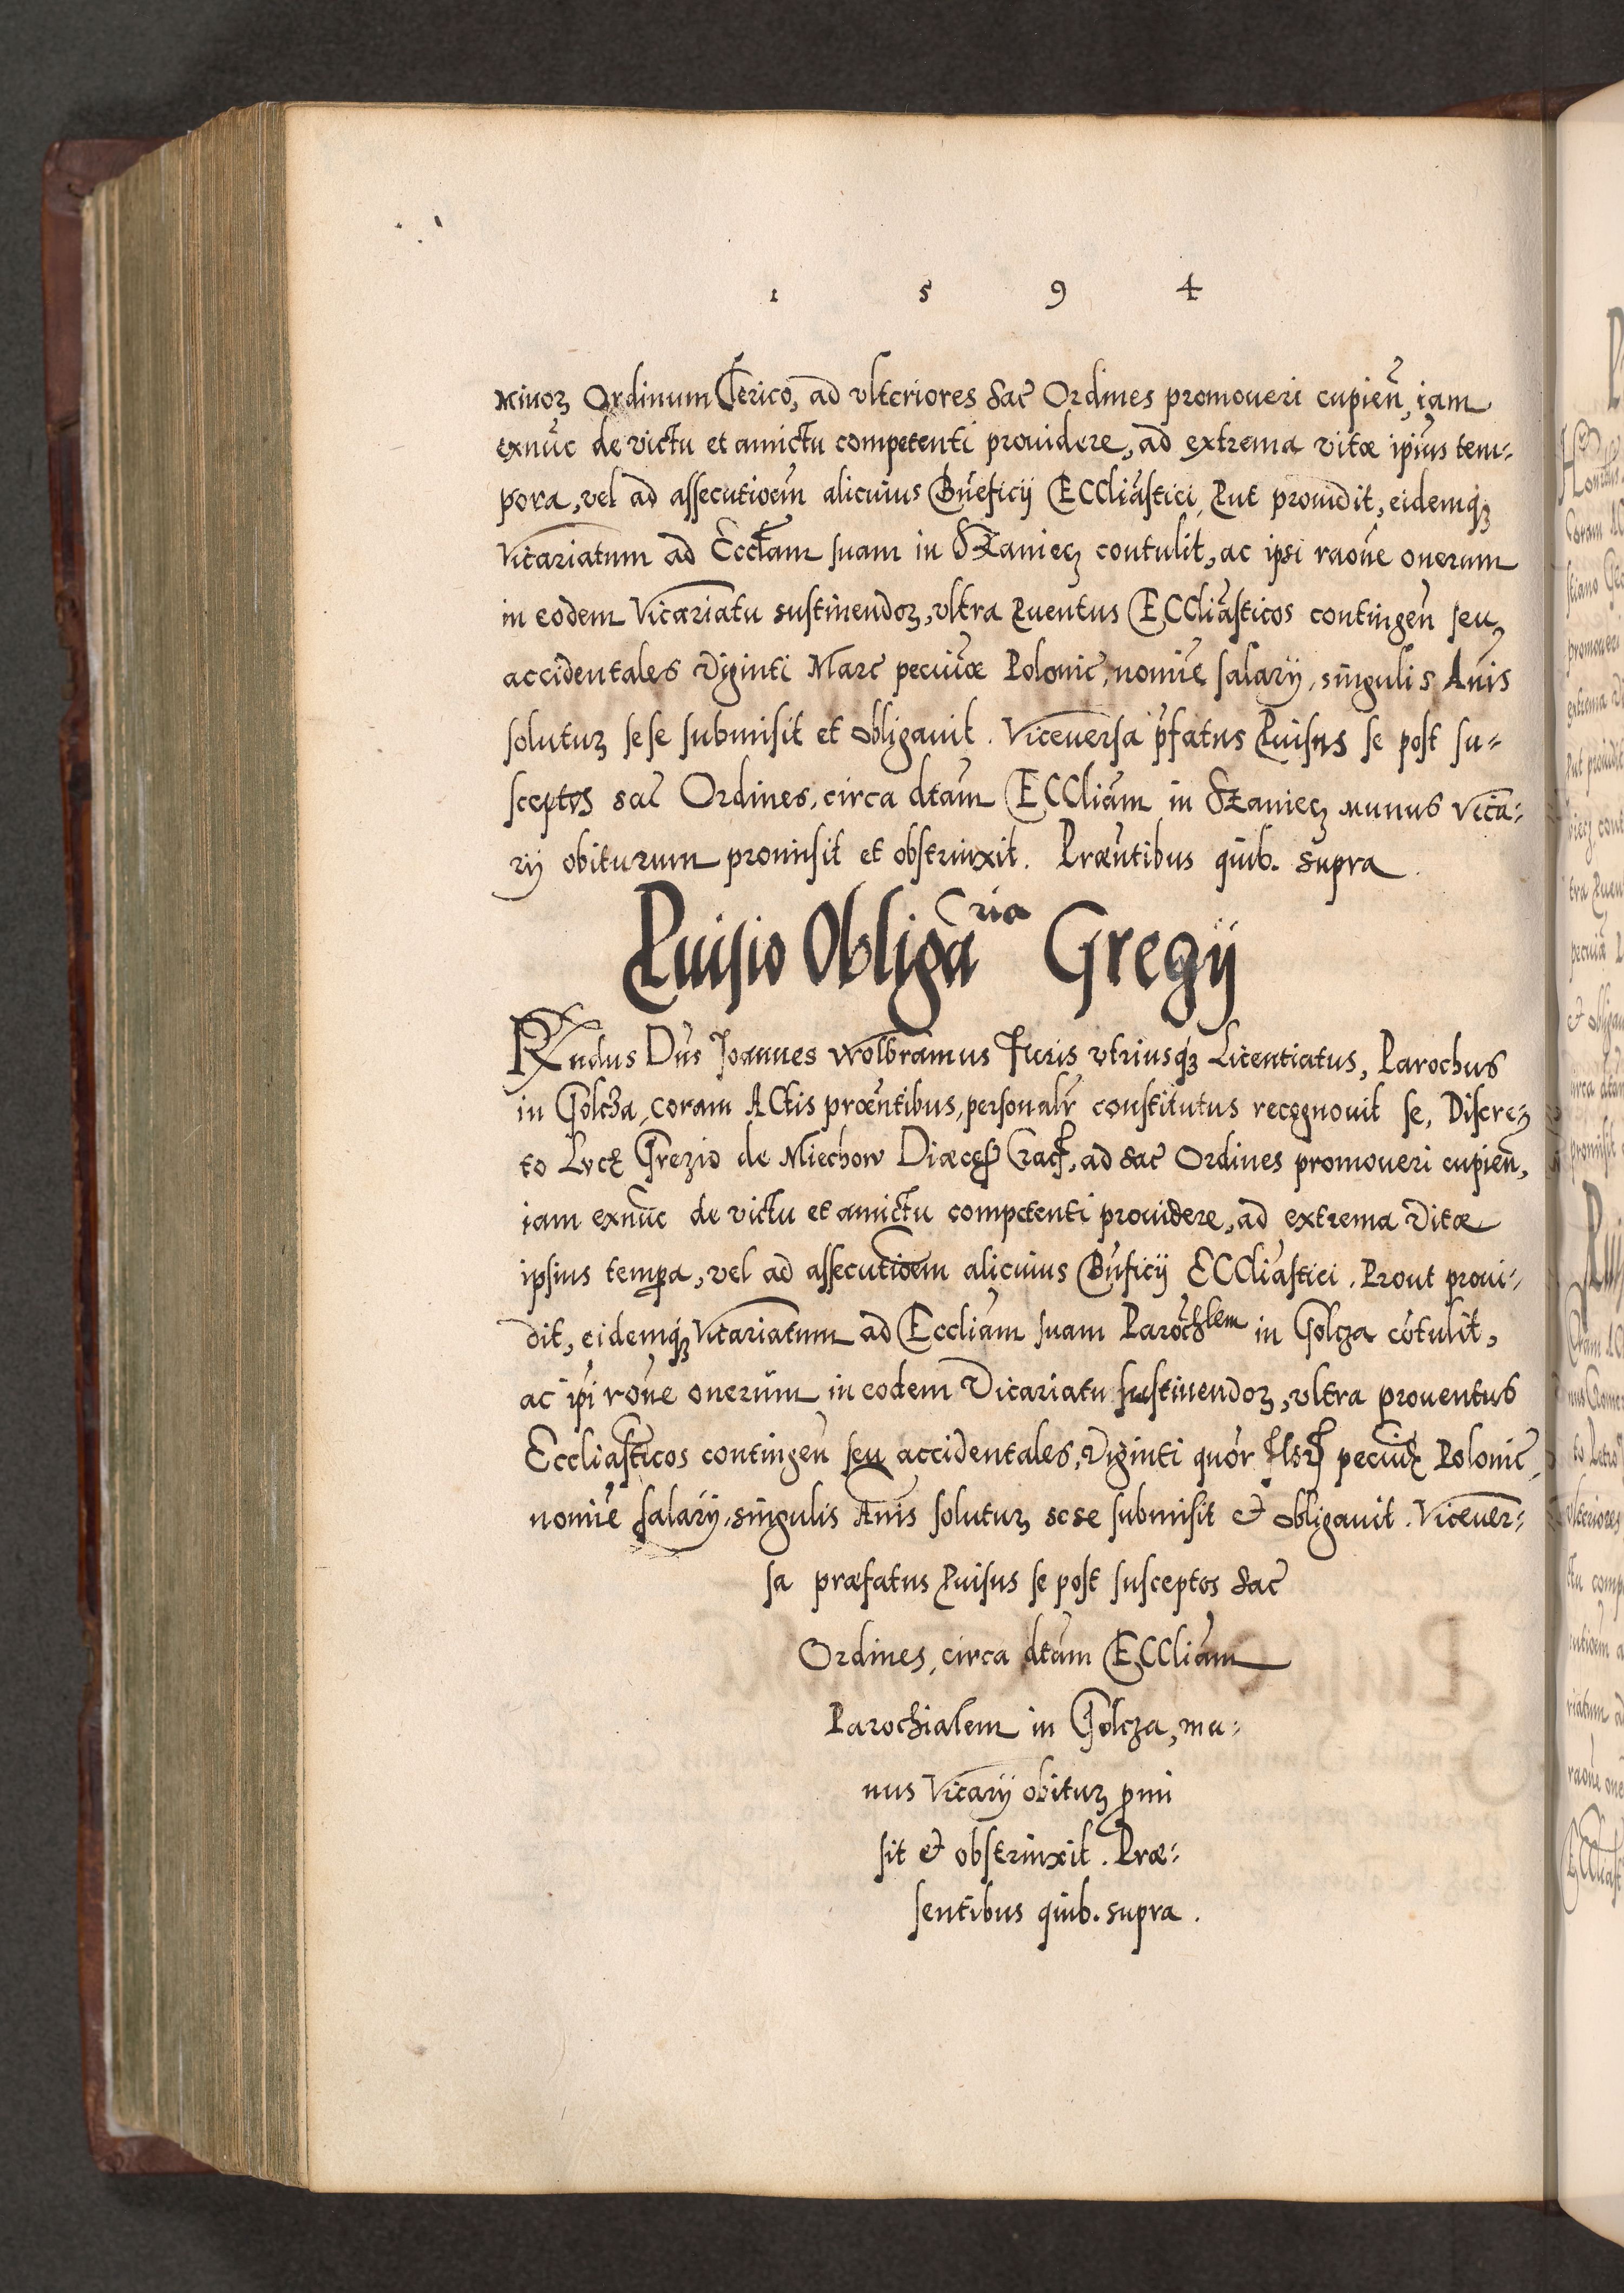 1 5 9 4
minoꝝ Ordinum Clerico, ad vlteriores Sac̄ Ordines promoueri cupien̄, iam
exnūc de victu et amictu competenti prouidere, ad extrema vitæ ip̄ius tem-
pora, vel ad assecutioēm alicuius Bn̄eficij ECCliāstici, Put prouidit, eidemqꝫ
Vicariatum ad Eccl̄am suam in Sżaniecz contulit, ac ipsi raōne onerum
in eodem Vicariatu sustinendoꝝ, vltra Puentus ECCliāsticos contingen̄ seu
accidentales Viginti Marc̄ pecuniæ Polonic̄, nomīe salarij, singulis An̄is
solutuꝝ sese submisit et obligauit. Viceuersa p̄fatus Puisus se post su-
sceptos sac̄ Ordines, circa dtām ECCliām in Sżaniecz munus Vica-
rij obiturum promisit et obstrinxit. Præn̄tibus quib. supra.
Puisio Obligāria Gregij
Rx̄ndus Dn̄s Joannes Wolbramus Juris vtriusqꝫ Licentiatus, Parochus
in Golcza, coram ACtis præn̄tibus, personalr̄ constitutus recognouit se, Discre-
to Lucę Grezio de Miechow Diæces̄ Crac̄, ad sac̄ Ordines promoueri cupien̄,
iam exnūc de victu et amictu competenti prouidere, ad extrema Vitæ
ipsius tempora, vel ad assecutioēm alicuius Bn̄ficij ECCliāstici. Prout proui-
dit, eidemqꝫ Vicariatum ad Eccliām suam Parochlem in Golcza cōtulit,
ac ip̄i rōne onerum in eodem Vicariatu sustinendoꝝ, vltra prouentus
Eccliāsticos contingen̄ seu accidentales, Viginti quōr flor̄ pecunię Polonic̄,
nomīe salarij, singulis An̄is solutuꝝ sese submisit & obligauit. Viceuer-
sa præfatus Puisus se post susceptos Sac̄
Ordines, circa dtām ECCliām
Parochialem in Golcza, mu-
nus Vicarij obituꝝ ꝓmi
sit & obstrinxit. Præ-
sentibus quib. supra.